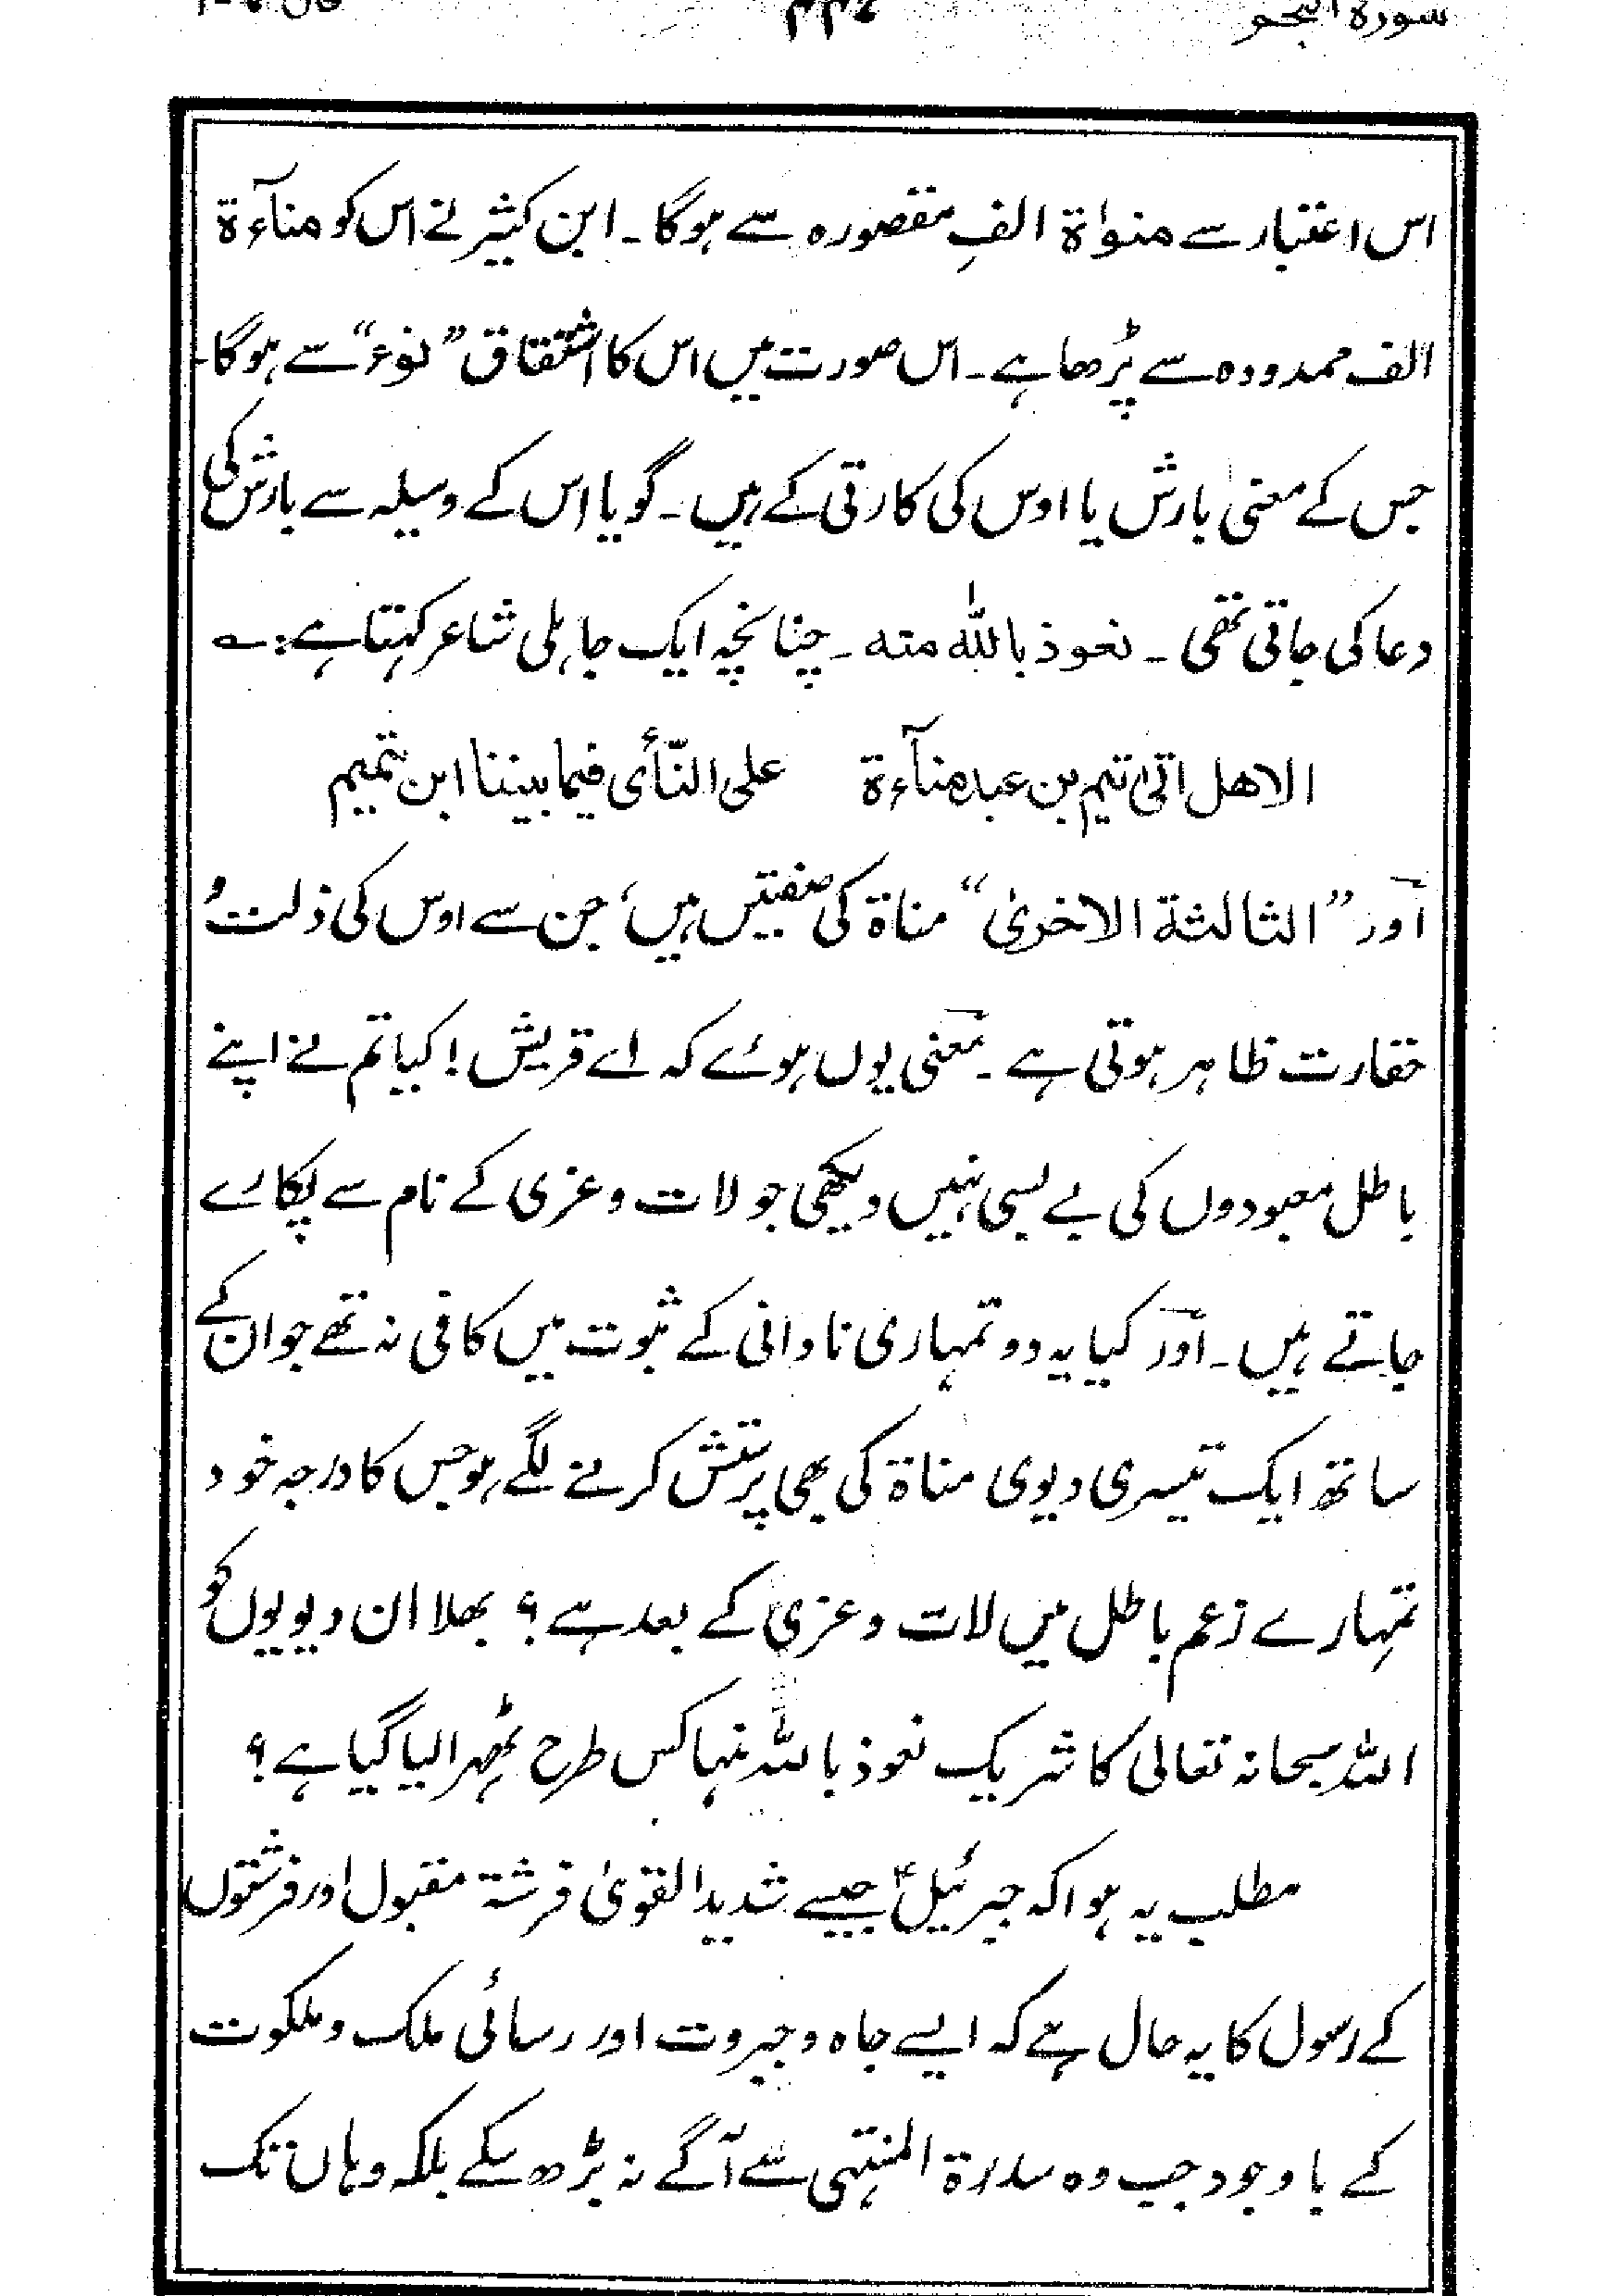 سورۃ النجم
اس اعتبار سے منوٰاۃ الفِ مقصورہ سے ہوگا۔ ابن کثیر نے اس کو مناَءۃ
الف ممدودہ سے پڑھا ہے۔ اس صورت میں اس کا اشتقاق ”نوء“ سے ہوگا۔
جس کے معنیٰ بارش یا اوس کی کارتی کے ہیں۔ گویا اس کے وسیلہ سے بارش کی
دعا کی جاتی تھی۔ نعوذ باللہ منہ۔ چنانچہ ایک جاہلی شاعر کہتا ہے:۔
الا ھل اتیٰ تیم بن عبد منآءۃ علی النّأی فیما بیننا ابن تمیم
اور ”الثالثۃ الاخریٰ“ مناۃ کی صفتیں ہیں، جن سے اوس کی ذلت و
حقارت ظاہر ہوتی ہے۔ معنی یوں ہوئے کہ اے قریش! کیا تم نے اپنے
باطل معبودوں کی بے بسی نہیں دیکھی جو لات و عزی کے نام سے پکارے
جاتے ہیں۔ اور کیا یہ دو تمہاری نادانی کے ثبوت میں کافی نہ تھے جو ان کے
ساتھ ایک تیسری دیوی مناۃ کی بھی پرستش کرنے لگے ہو جس کا درجہ خود
تمہارے زعم باطل میں لات و عزی کے بعد ہے؟ بھلا ان دیویوں کو
اللہ سبحانہ تعالیٰ کا شریک نعوذ باللہ منہا کس طرح ٹھہرا لیا گیا ہے؟
مطلب یہ ہوا کہ جبرئیلؑ جیسے شدید القویٰ فرشتۃ مقبول اور فرشتوں
کے رسول کا یہ حال ہے کہ ایسے جاہ و جبروت اور رسائی ملک و ملکوت
کے باوجود جب وہ سدرۃ المنتہی سے آگے نہ بڑھ سکے بلکہ وہاں تک